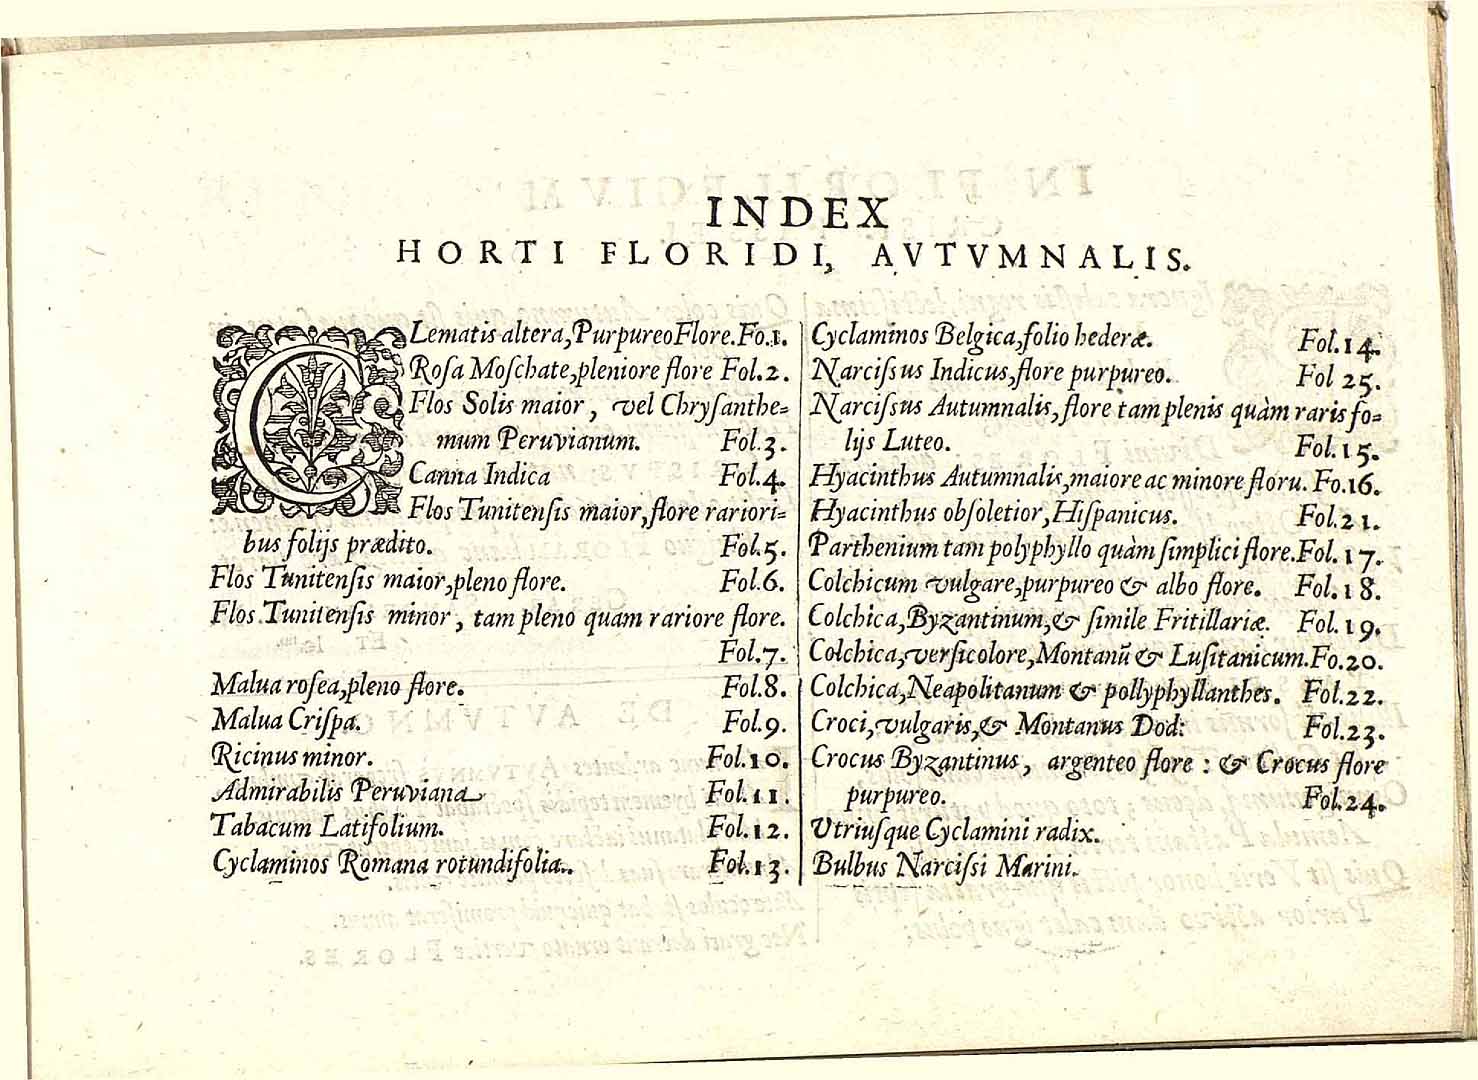 INDEX
HORTI FLORIDI, AVTVMNALIS.
CLematis altera, Purpureo Flore. Fo.1.
Rosa Moschate, pleniore flore Fol.2.
Flos Solis maior, vel Chrysanthe=
mum Peruvianum. Fol.3.
Canna Indica Fol.4.
Flos Tunitensis maior, flore rariori=
bus folijs prædito. Fol.5.
Flos Tunitensis maior, pleno flore. Fol.6.
Flos Tunitensis minor, tam pleno quam rariore flore.
Fol.7.
Malua rosea, pleno flore. Fol.8.
Malua Crispa. Fol.9.
Ricinus minor. Fol.10.
Admirabilis Peruviana Fol.11.
Tabacum Latifolium. Fol.12.
Cyclaminos Romana rotundifolia.. Fol.13.
Cyclaminos Belgica, folio hederæ. Fol.14.
Narcissus Indicus, flore purpureo. Fol 25.
Narcissus Autumnalis, flore tam plenis quàm raris fo=
lijs Luteo. Fol.15.
Hyacinthus Autumnalis, maiore ac minore floru. Fo.16.
Hyacinthus obsoletior, Hispanicus. Fol.21.
Parthenium tam polyphyllo quàm simplici flore. Fol.17.
Colchicum vulgare, purpureo & albo flore. Fol.18.
Colchica, Byzantinum, & simile Fritillariæ. Fol.19.
Colchica, versicolore, Montanũ & Lusitanicum. Fo.20.
Colchica, Neapolitanum & pollyphyllanthes. Fol.22.
Croci, vulgaris, & Montanus Dod: Fol.23.
Crocus Byzantinus, argenteo flore : & Crocus flore
purpureo. Fol.24.
Utriusque Cyclamini radix.
Bulbus Narcissi Marini.